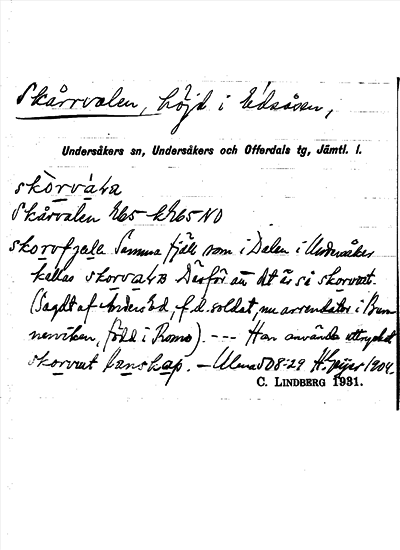 Skårrvalen, höjd i Edsåsen,
Undersåkers sn, Undersåkers och Offerdals tg, Jämtl. l.
skòrvàla
Skårvalen
skorvfjäll Samma fjäll som i Dalen i Undersåker
kallas Därför att det är så skorvut.
(Sagdt af Anders Ed, f.d. soldat, nu arrendator i
född i Romo). --- Han använde uttrycket
skorvut lanskap. – Ulma 508-29 H. Geijer 1904.
C. LINDBERG 1931.